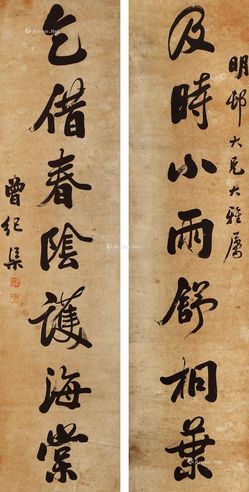 明邨大兄大雅屬
及時小雨舒桐葉
乞借春陰護海棠
曾纪渠